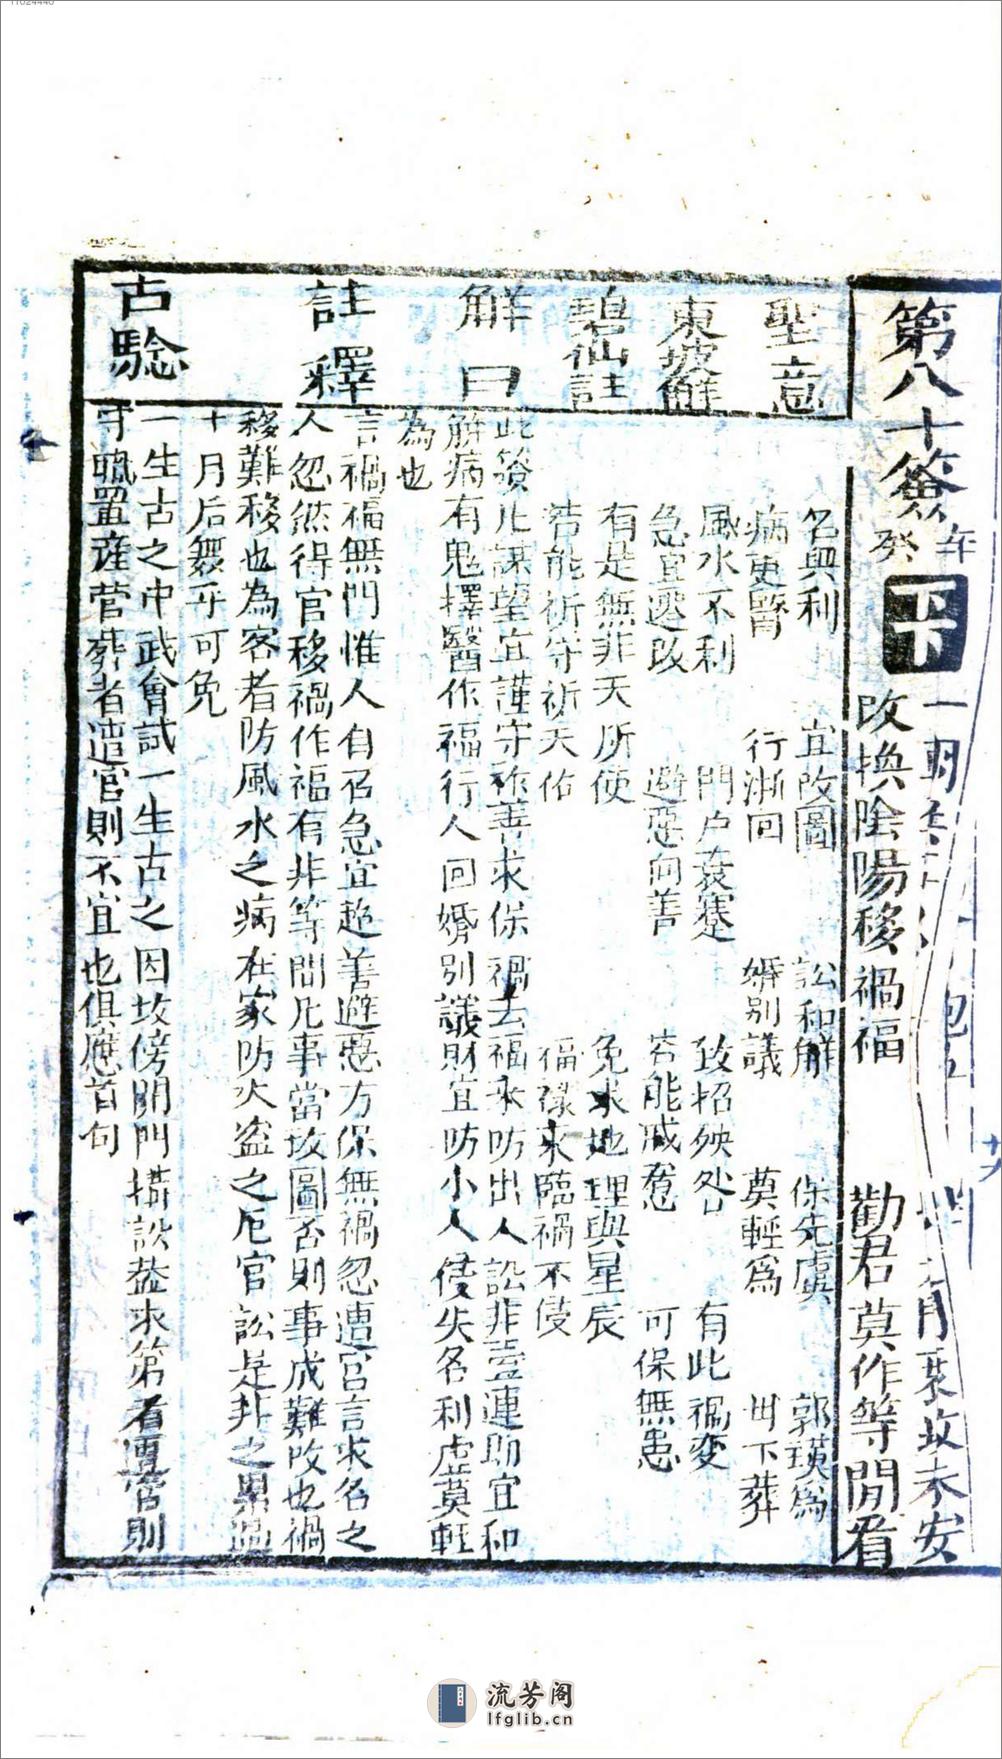 第八十簽 癸午 下下
肖夜攻未安
改換陰陽移禍福 勸君莫作等閒看
聖意
名與利 宜改圖 訟和解 保先虞 郭瑛爲
病更醫 行漸回 婚別議 莫輕爲 毌下葬
東坡解
風水不利 門户衰蹇 致招殃咎 有此禍变
急宜遷改 避惡向善 若能减愆 可保無患
碧仙註
有是無非天所使 免求地理與星辰
若能祈守祈天佑 福祿來臨禍不侵
解曰
此簽凡謀望宜謹守作善求保禍去福來防出人訟非壹連助宜和
解病有鬼擇醫作福行人回婚别議財宜防小人侵失名利虚莫軽
為也
註釋
言禍福無門惟人自召急宜趋善避惡方保無禍忽遭官言求名之
人忽然得官移禍作福有非等閒凡事當改圖否則事成難改也禍
移難移也為客者防風水之病在家防火盗之厄官訟是非之累過
十月后無可免
古驗
一生古之中武會試一生古之因坟傍開門搆訟葢求第者遷官則
置産营葬者遣官則不宜也俱應首句
流芳阁
lfglib.cn